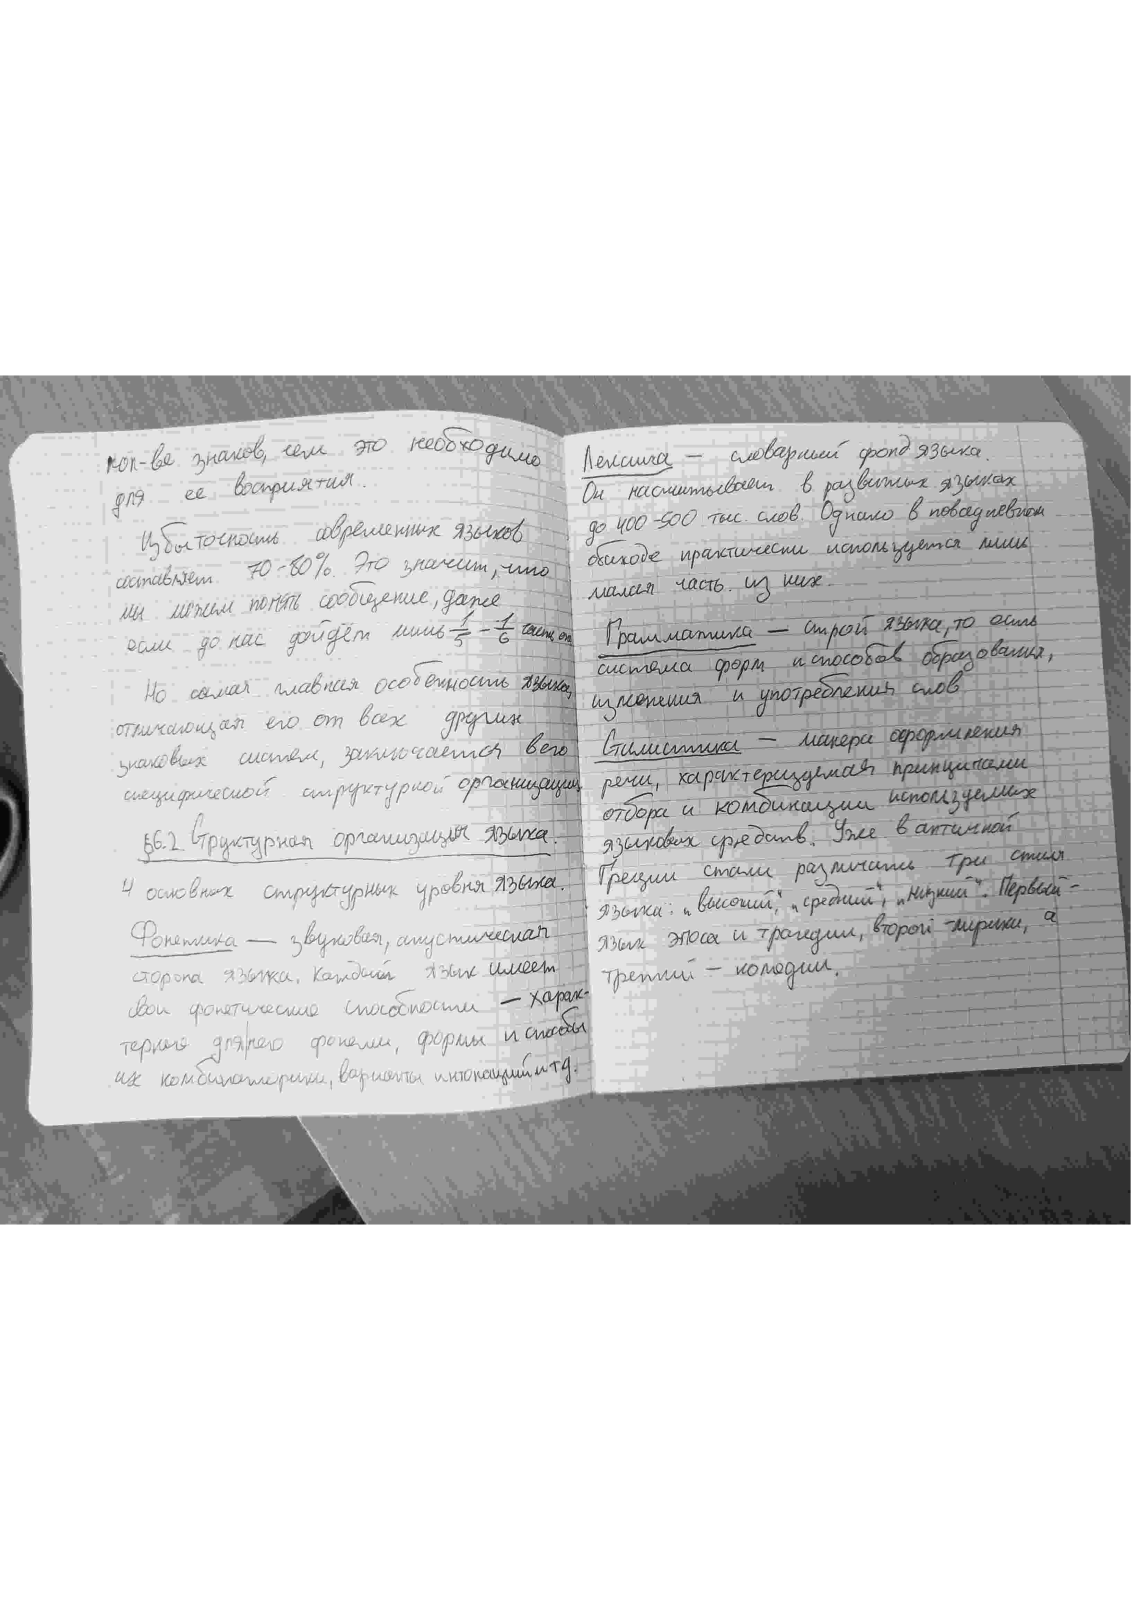 кол-ве знаков, чем это необходимо
для ее восприятия.
Избыточность современных языков
составляет 70-80%. Это значит, что
мы можем понять сообщение, даже
если до нас дойдёт лишь 1/5 - 1/6 часть от
Но самая главная особенность языка,
отличающая его от всех других
знаковых систем, заключается в его
специфической структурной организации.
§6.2 Структурная организация языка.
4 основных структурных уровня языка.
Фонетика — звуковая, акустическая
сторона языка. Каждый язык имеет
свои фонетические способности — харак-
терные для него фонемы, формы и способы
их комбинаторики, варианты интонаций и тд.
Лексика — словарный фонд языка.
Он насчитывает в развитых языках
до 400-500 тыс. слов. Однако в повседневном
обиходе практически используется лишь
малая часть из них.
Грамматика — строй языка, то есть
система форм и способов образования,
изменения и употребления слов
Стилистика — манера оформления
речи, характеризуемая принципами
отбора и комбинации используемых
языковых средств. Уже в античной
Греции стали различать три стиля
языка: „высокий“, „средний“, „низкий“. Первый -
язык эпоса и трагедии, второй - лирики, а
третий — комедии.